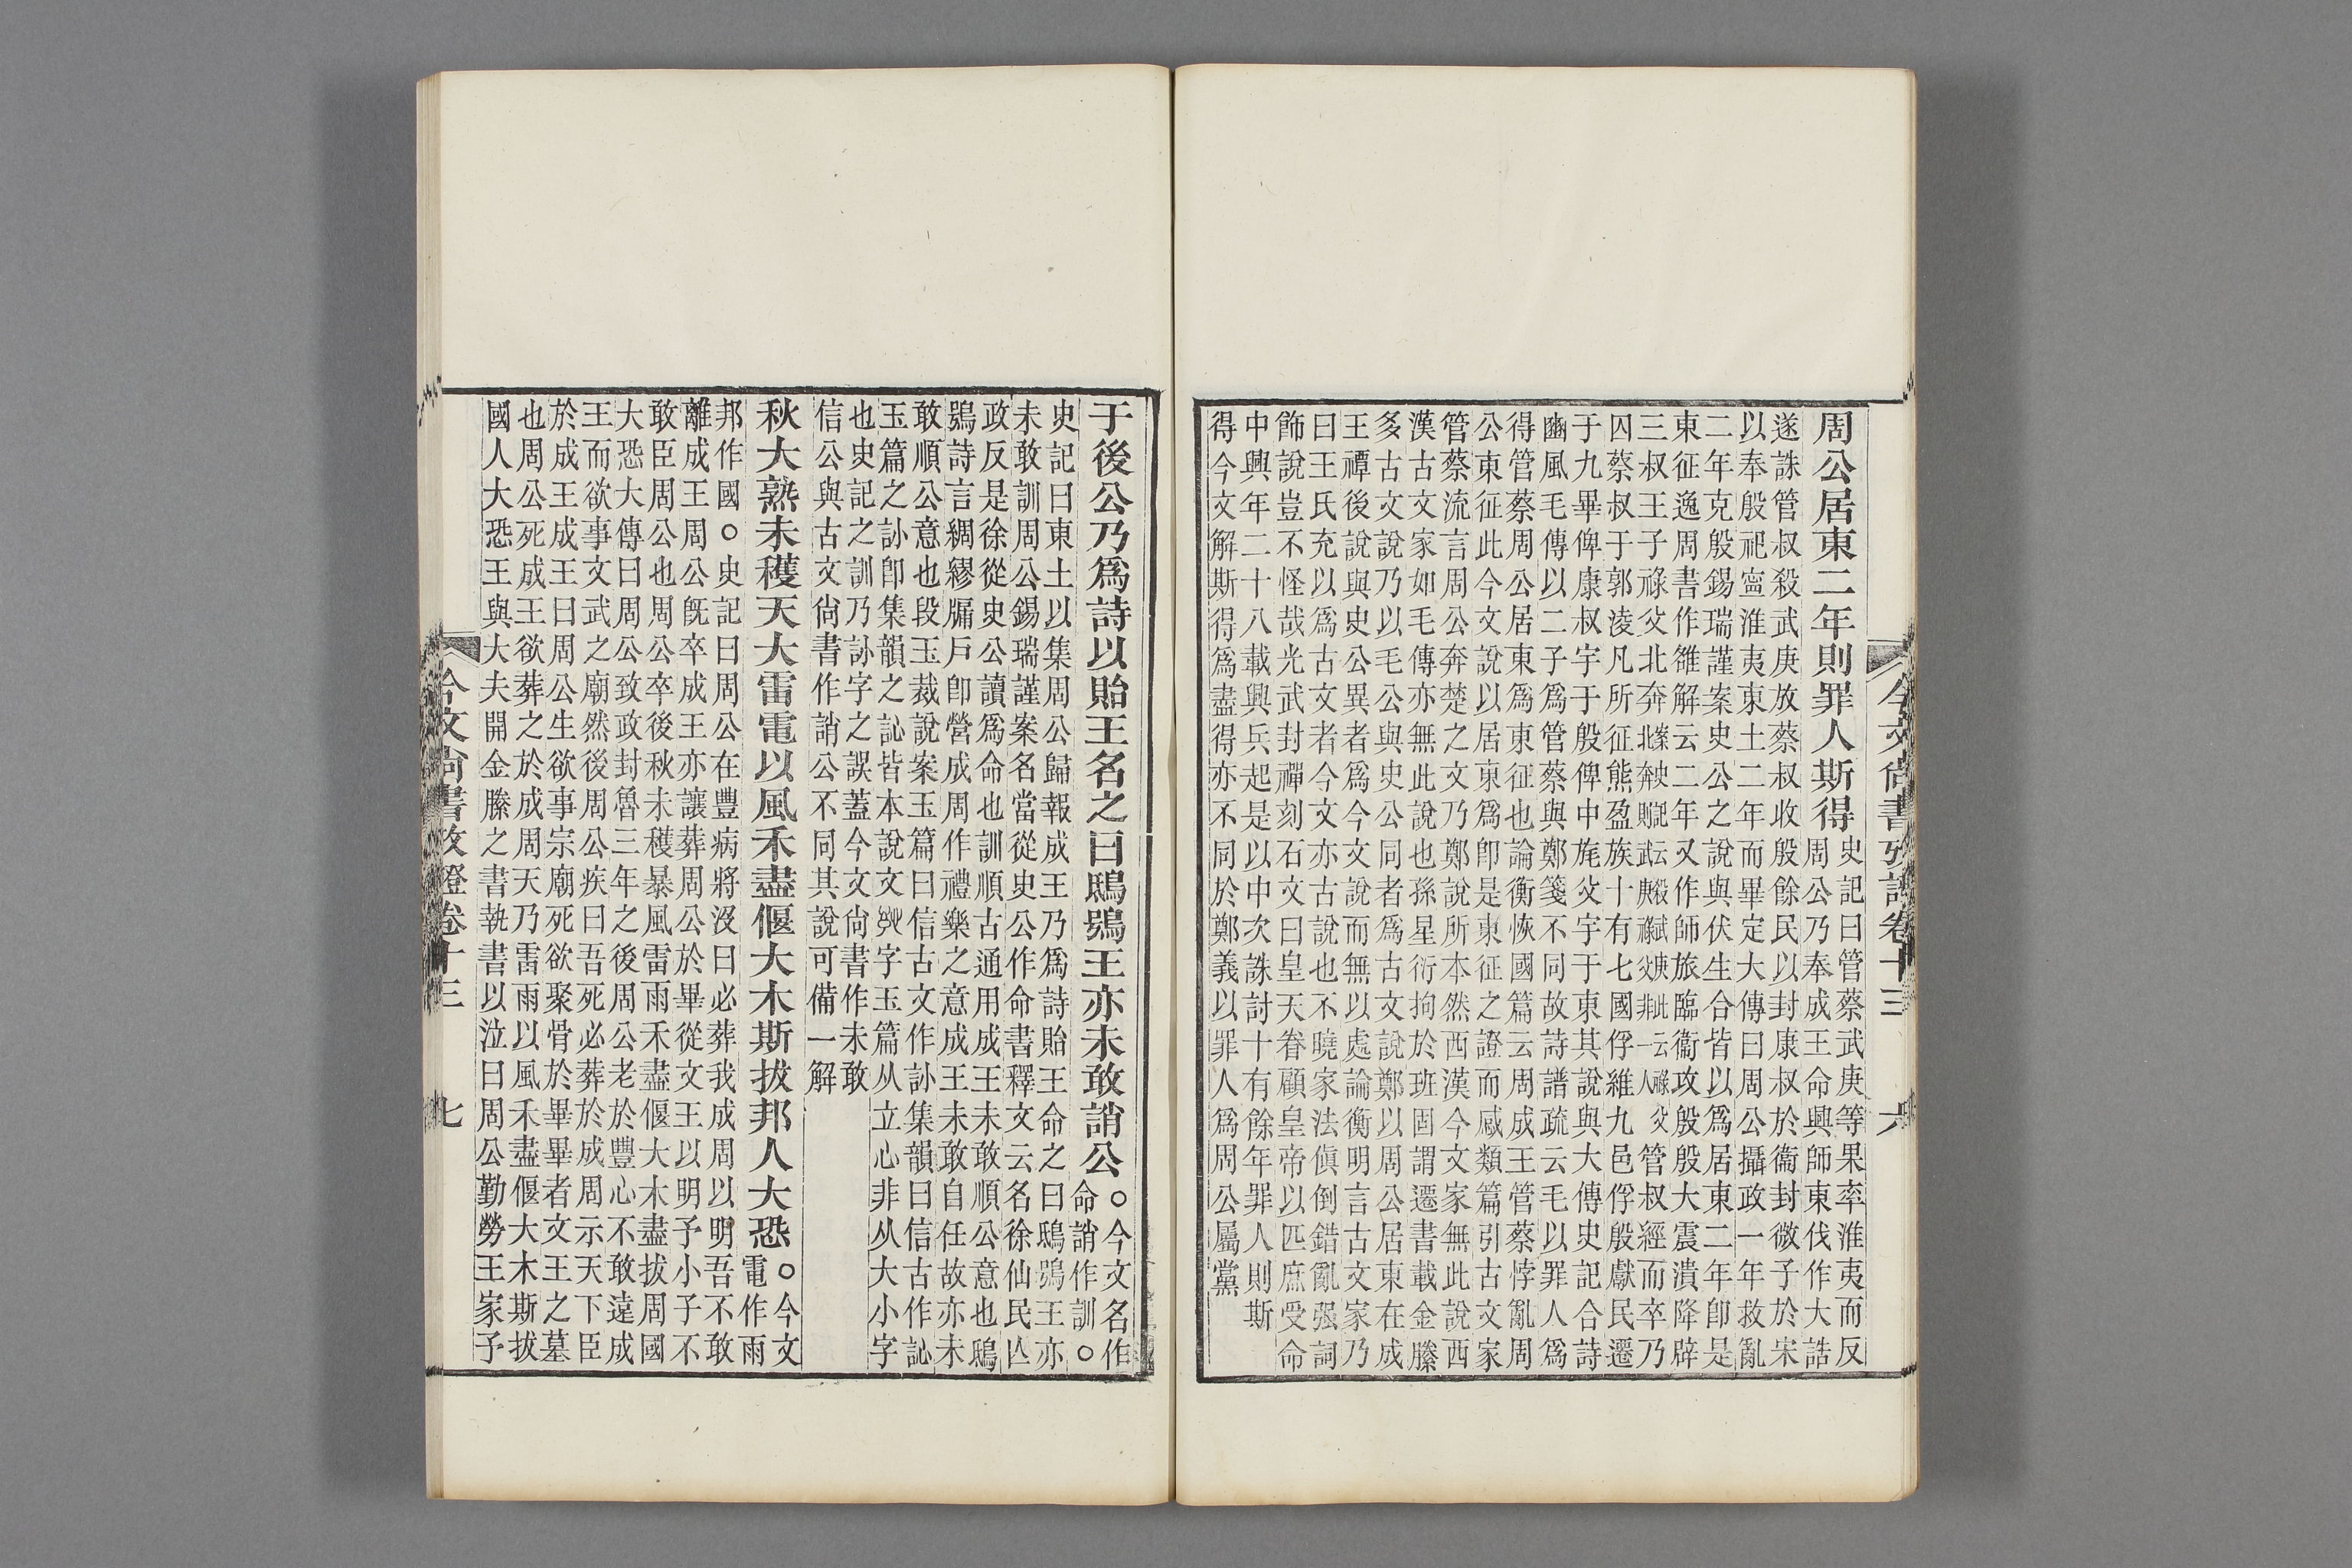 周公居東二年則罪人斯得
史記曰管蔡武庚等果率淮夷而反
周公乃奉成王命興師東伐作大誥
遂誅管叔殺武庚放蔡叔收殷餘民以封康叔於衞封微子於宋
以奉殷祀寍淮夷東土二年而畢定大傳曰周公攝政一年救亂
二年克殷錫瑞謹案史公之說與伏生合皆以爲居東二年卽是
東征逸周書作雒解云二年又作師旅臨衞攻殷殷大震潰降辟
三叔王子祿父北奔 管叔經而卒乃
囚蔡叔于郭淩凡所征熊盈族十有七國俘維九邑俘殷獻民遷
于九畢俾康叔宇于殷俾中旄父宇于東其說與大傳史記合詩
豳風毛傳以二子爲管蔡與鄭箋不同故詩譜疏云毛以罪人爲
得管蔡周公居東爲東征也論衡恢國篇云周成王管蔡悖亂周
公東征此今文說以居東爲卽是東征之證而感類篇引古文家
管蔡流言周公奔楚之文乃鄭說所本然西漢今文家無此說西
漢古文家如毛傳亦無此說也孫星衍拘於班固謂遷書載金縢
多古文說乃以毛公與史公同者爲古文說鄭以周公居東在成
王禫後說與史公異者爲今文說而無以處論衡明言古文家乃
曰王氏充以爲古文者今文亦古說也不曉家法傎倒錯亂强詞
飾說豈不怪哉光武封禪刻石文曰皇天眷顧皇帝以匹庶受命
中興年二十八載興兵起是以中次誅討十有餘年罪人則斯
得今文解斯得爲盡得亦不同於鄭義以罪人爲周公屬黨
今文尙書攷證卷十三 六
于後公乃爲詩以貽王名之曰鴟鴞王亦未敢誚公
○今文名作
命誚作訓○
史記曰東土以集周公歸報成王乃爲詩貽王命之曰鴟鴞王亦
未敢訓周公錫瑞謹案名當從史公作命書釋文云名徐仙民亾
政反是徐從史公讀爲命也訓順古通用成王未敢順公意也鴟
鴞詩言綢繆牖戶卽營成周作禮樂之意成王未敢自任故亦未
敢順公意也段玉裁說案玉篇曰信古文作訫集韻曰信古作訫
玉篇之訫卽集韻之訫皆本說文 字玉篇从立心非从大小字
也史記之訓乃訫字之誤蓋今文尙書作未敢
信公與古文尙書作誚公不同其說可備一解
秋大熟未穫天大雷電以風禾盡偃大木斯拔邦人大恐
○今文
電作雨
邦作國○史記曰周公在豐病將沒曰必葬我成周以明吾不敢
離成王周公旣卒成王亦讓葬周公於畢從文王以明予小子不
敢臣周公也周公卒後秋未穫暴風雷雨禾盡偃大木盡拔周國
大恐大傳曰周公致政封魯三年之後周公老於豐心不敢遠成
王而欲事文武之廟然後周公疾曰吾死必葬於成周示天下臣
於成王成王曰周公生欲事宗廟死欲聚骨於畢畢者文王之墓
也周公死成王欲葬之於成周天乃雷雨以風禾盡偃大木斯拔
國人大恐王與大夫開金縢之書執書以泣曰周公勤勞王家予
今文尙書攷證卷十三 七